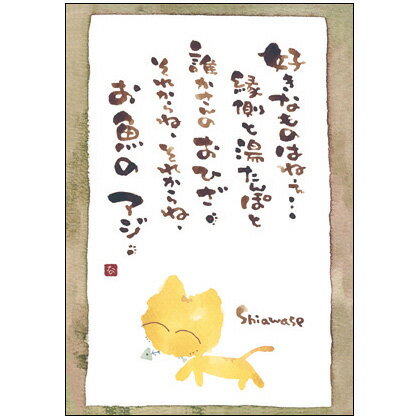 好きなものはね…
縁側と湯たんぽと
誰かさんのおひざ。
それからね、それからね、
お魚のアジ。
Shiawase